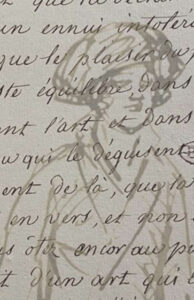 un ennui intolér
que le plaisir du p
ste équilibre, dans
nt l'art et dans
u qui le déguisent
ent de là, que la
en vers, et non
s ôter encor au p
t d'un art qui